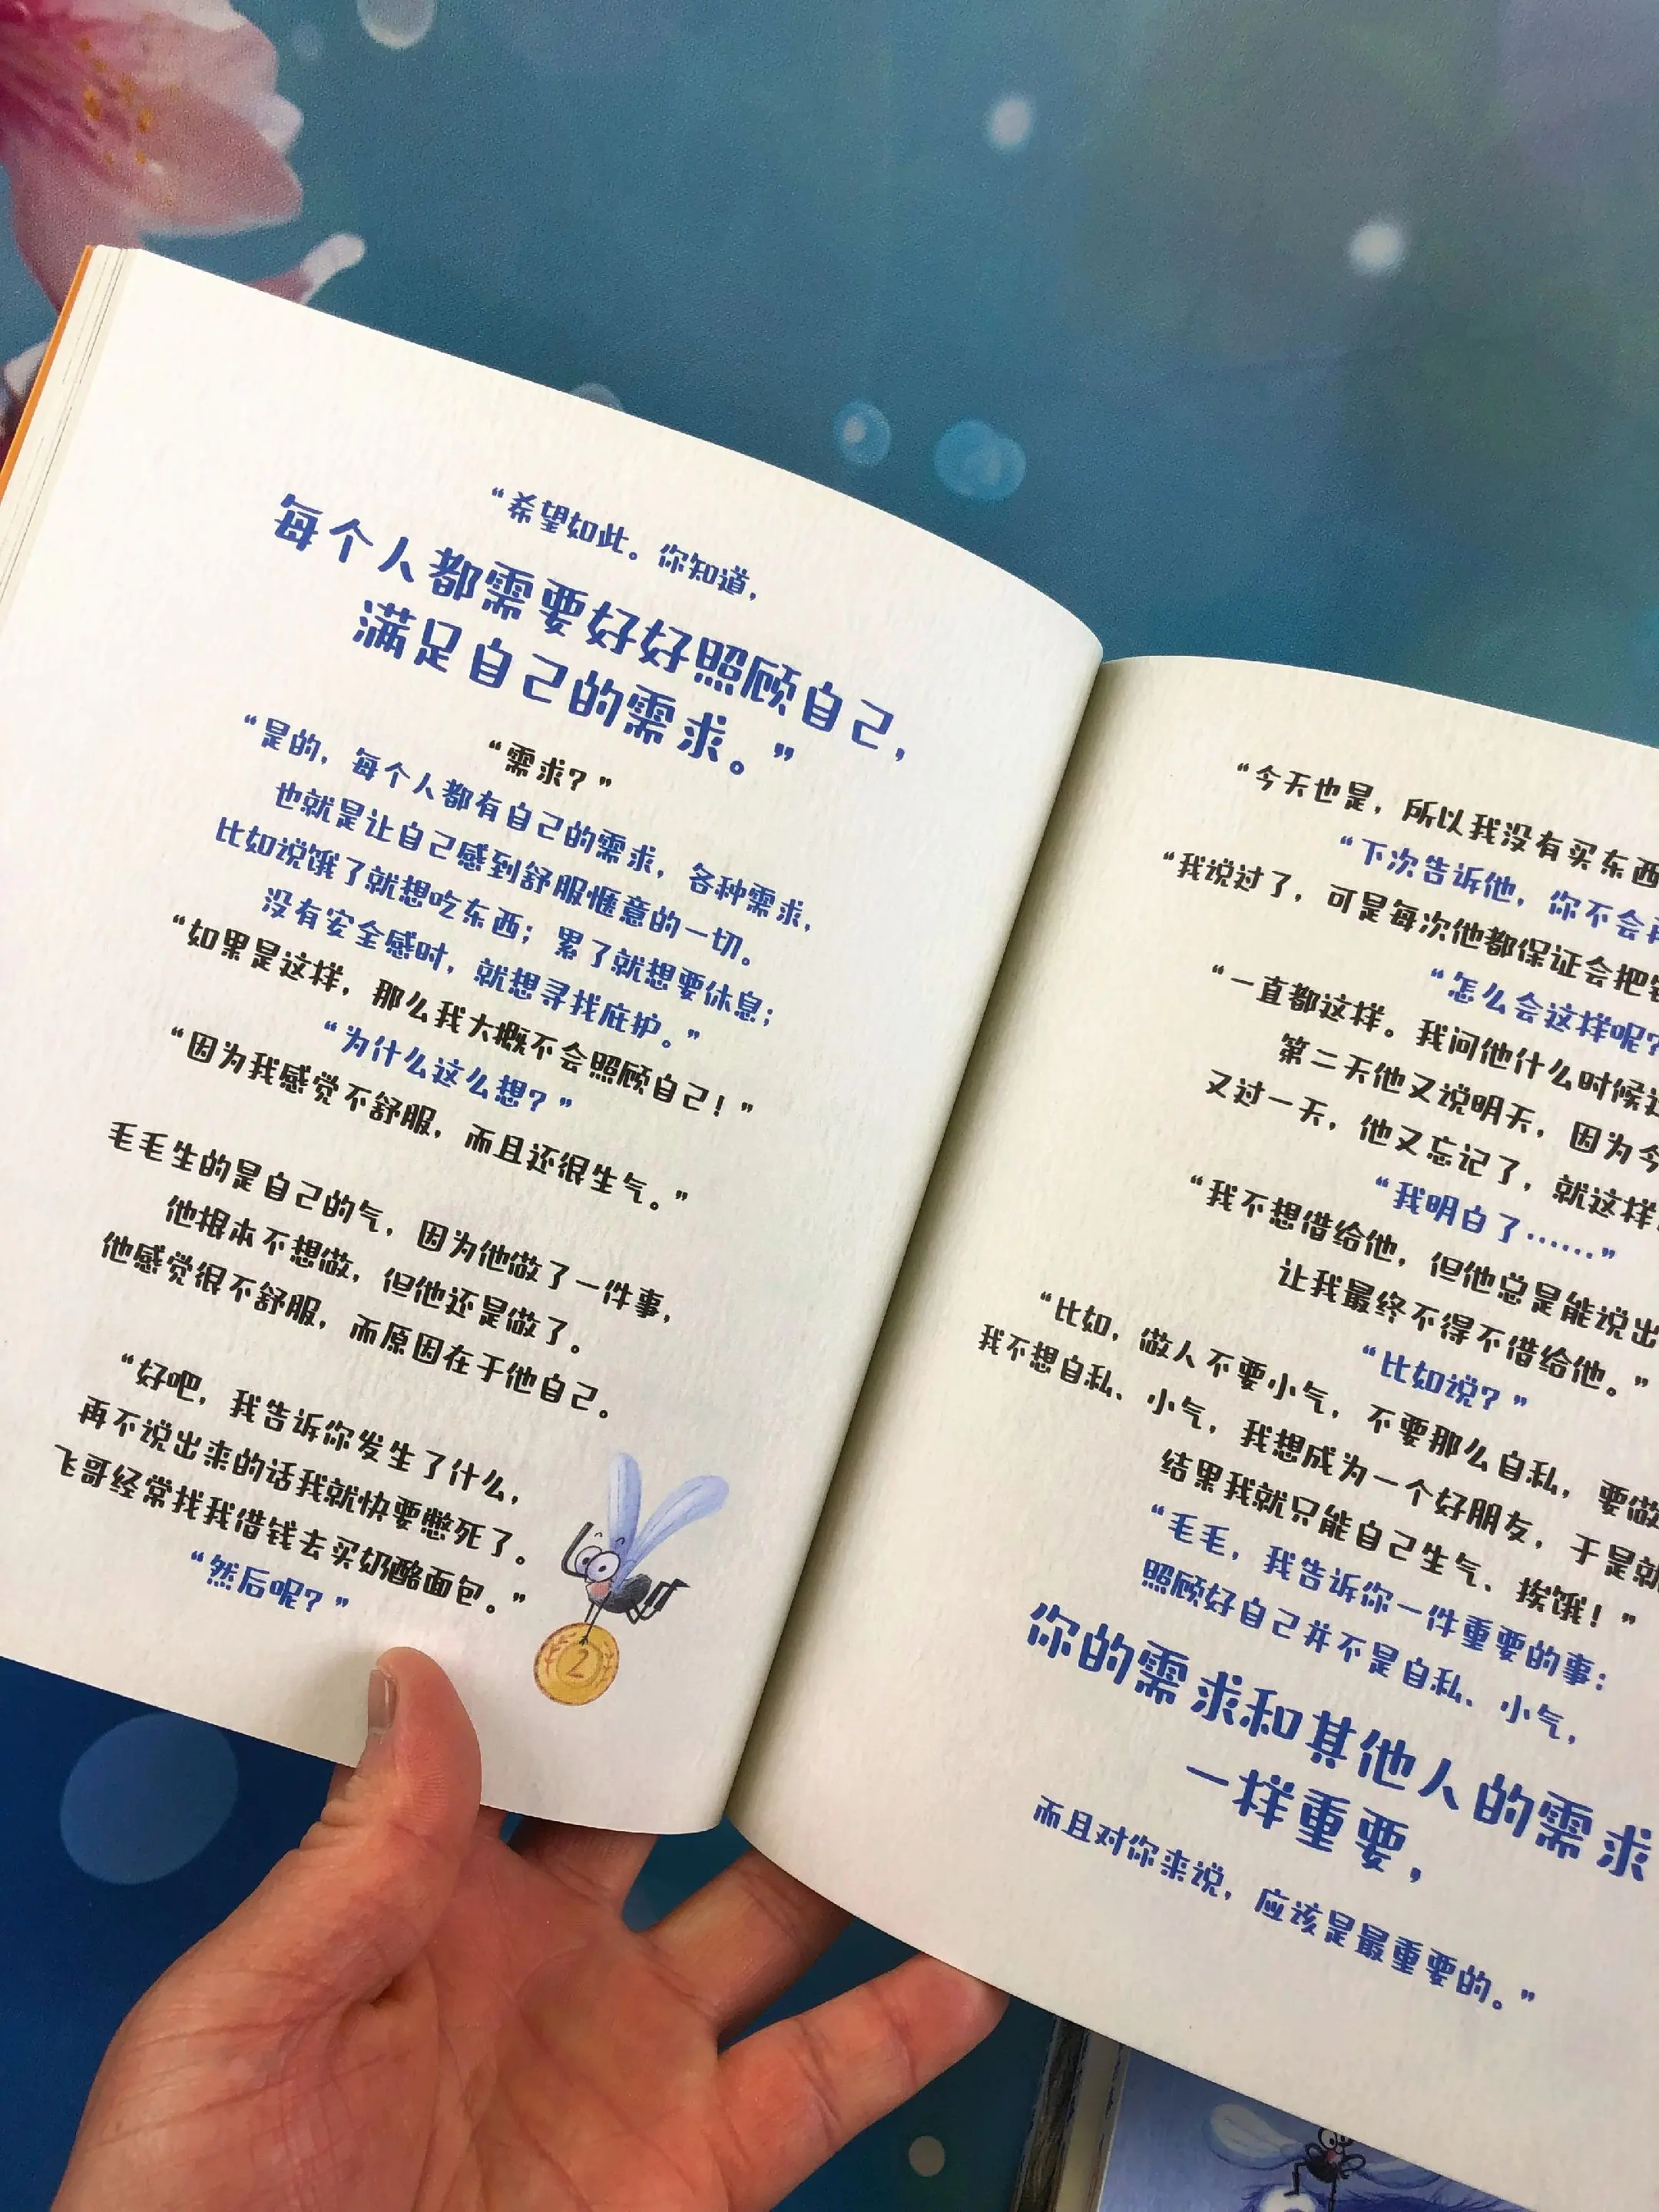 “希望如此。你知道，
每个人都需要好好照顾自己，
满足自己的需求。”
“需求？”
“是的，每个人都有自己的需求，各种需求，
也就是让自己感到舒服惬意的一切。
比如说饿了就想吃东西；累了就想要休息；
没有安全感时，就想寻找庇护。”
“如果是这样，那么我大概不会照顾自己！”
“为什么这么想？”
“因为我感觉不舒服，而且还很生气。”
毛毛生的是自己的气，因为他做了一件事，
他根本不想做，但他还是做了。
他感觉很不舒服，而原因在于他自己。
“好吧，我告诉你发生了什么，
再不说出来的话我就快要憋死了。
飞哥经常找我借钱去买奶酪面包。”
“然后呢？”
2
“今天也是，所以我没有买东西
“下次告诉他，你不会再
“我说过了，可是每次他都保证会把
“怎么会这样呢？
“一直都这样。我问他什么时候
第二天他又说明天，因为今
又过一天，他又忘记了，就这样
“我明白了……”
“我不想借给他，但他总是能说出
让我最终不得不借给他。”
“比如说？”
“比如，做人不要小气，不要那么自私，要做
我不想自私、小气，我想成为一个好朋友，于是就
结果我就只能自己生气、挨饿！”
“毛毛，我告诉你一件重要的事：
照顾好自己并不是自私、小气，
你的需求和其他人的需求
一样重要，
而且对你来说，应该是最重要的。”